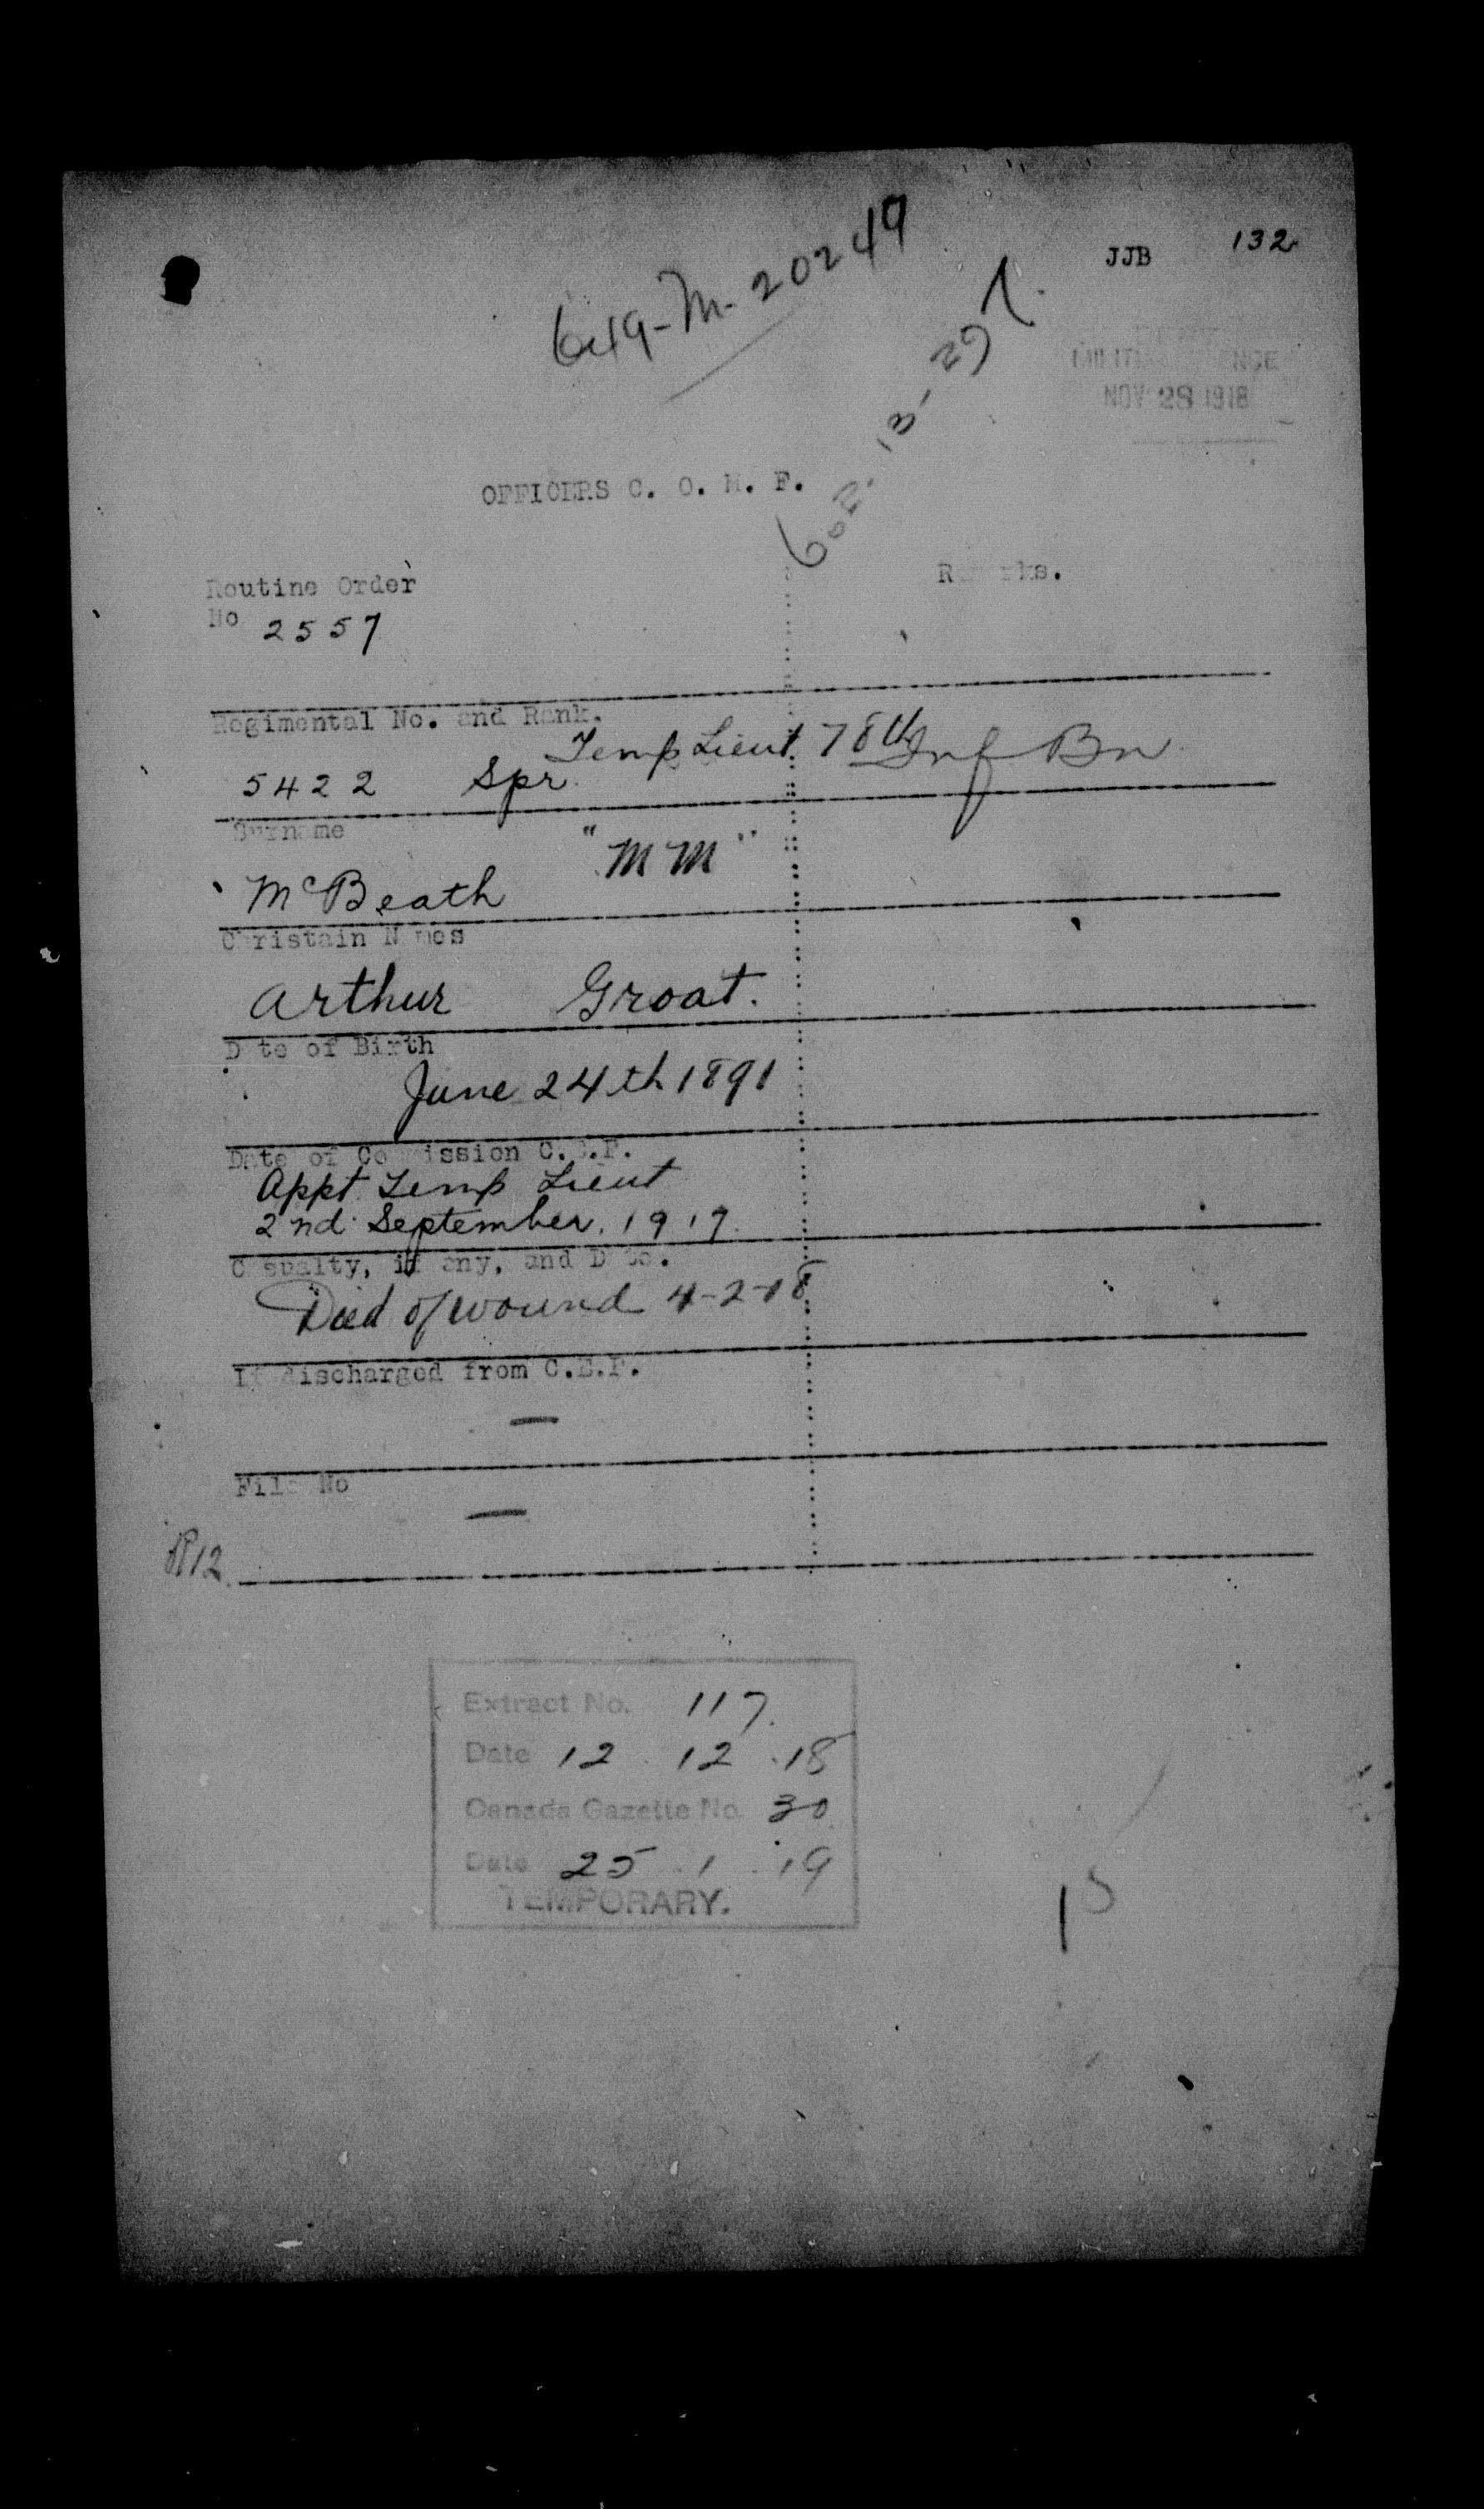 JJB 132
649-M-20249
602-13-297.
MILITIA DEFENCE
NOV 28 1918
OFFICERS C. O. M. F.
Routine Order
No 2557
Remarks.
Regimental No. and Rank.
Temp Lieut. 78th Inf Bn
5422 Spr.
Surname
"MM"
McBeath
Christain Names
Arthur Groat.
Date of Birth
June 24th 1891
Date of Commission C.E.F.
Appt Temp Lieut
2nd September. 1917.
Casualty, if any, and Date.
Died of wound 4-2-18
If discharged from C.E.F.
—
File No
—
R12
Extract No. 117.
Date 12.12.18
Canada Gazette No. 30
Date 25.1.19
TEMPORARY.